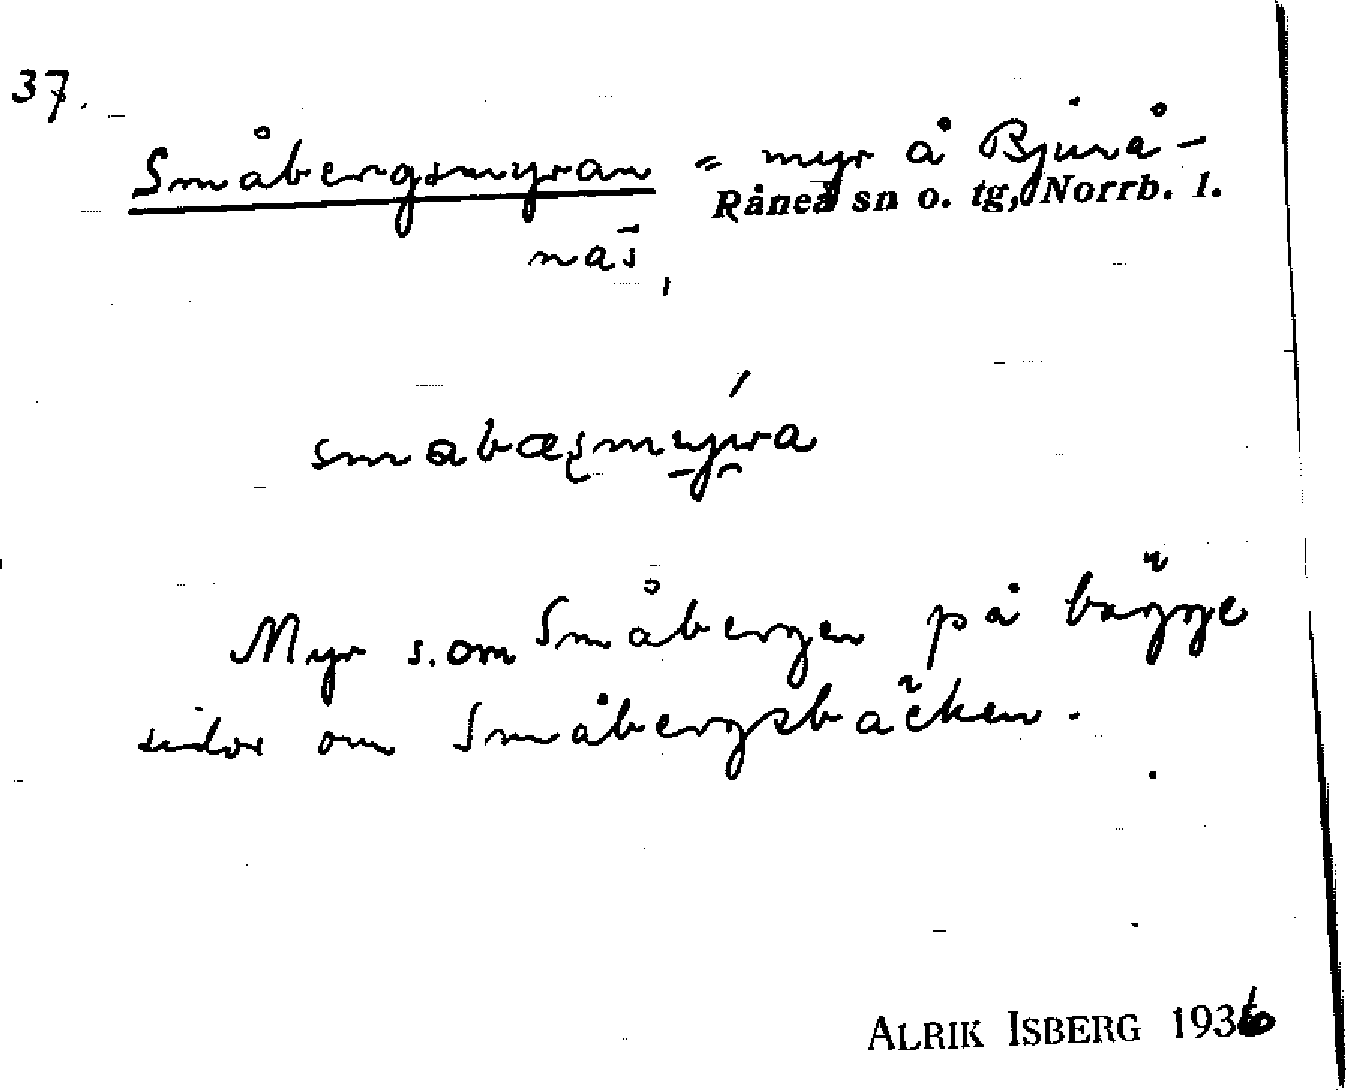 37.
Småbergsmyran = myr å Bjurå-
Råneå sn o. tg, Norrb. l.
näs,
Myr s. om Småbergen på bägge
sidor om Småbergsbäcken.
ALRIK ISBERG 1936